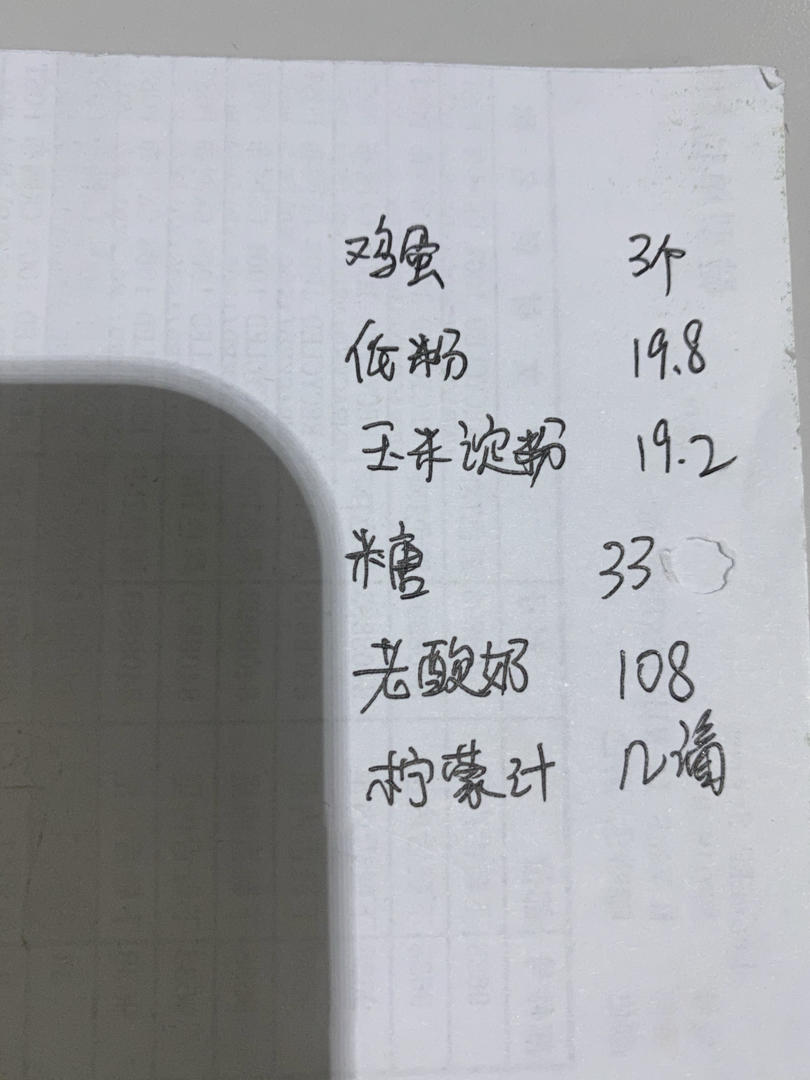 鸡蛋 3个
低粉 19.8
玉米淀粉 19.2
糖 33
老酸奶 108
柠蒙汁 几滴